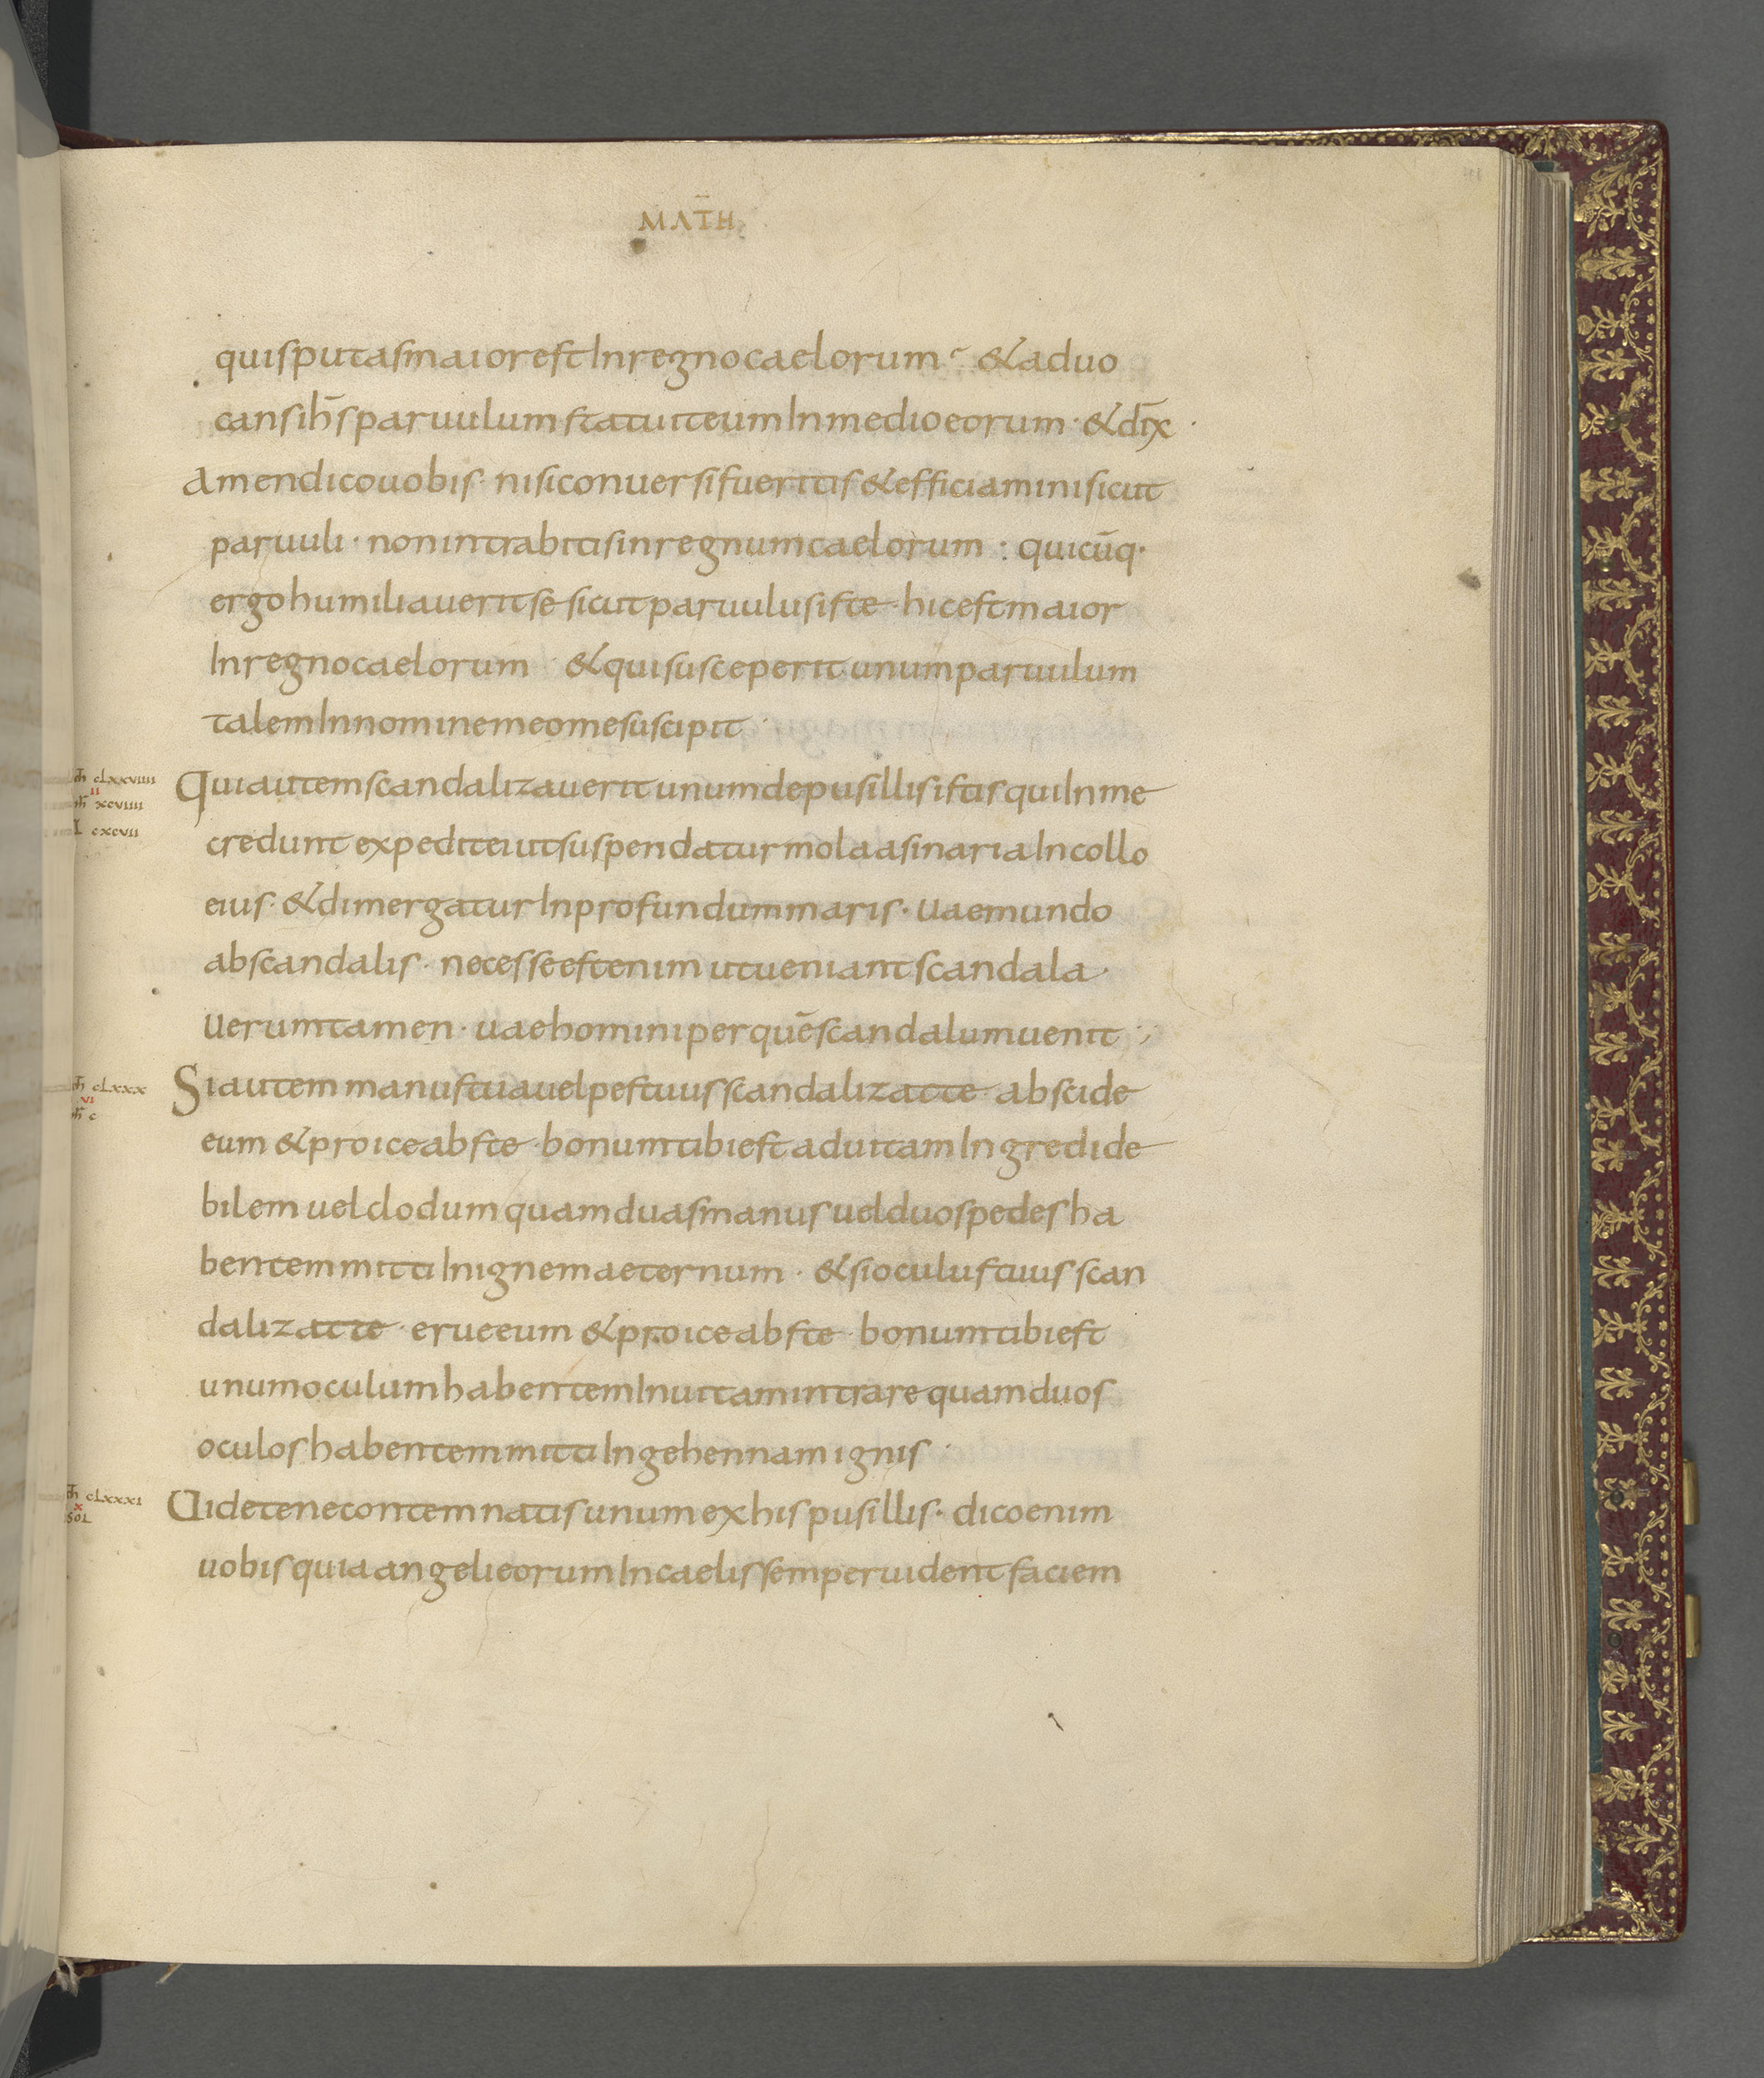 MAT̄H
quis putas maior est In regno caelorum & aduo
cans ih̄s paruulum statuit eum In medio eorum · & dīx ·
Amen dico uobis · nisi conuersi fueritis & efficiamini sicut
paruuli · non intrabitis in regnum caelorum : quicūq·
ergo humiliauerit se sicut paruulus iste · hic est maior
In regno caelorum & qui susceperit unum paruulum
talem In nomine meo me suscipit ·
Qui autem scandalizauerit unum de pusillis istis qui In me
credunt expedit ei ut suspendatur mola asinaria In collo
eius · & dimergatur In profundum maris · uae mundo
ab scandalis · necesse est enim ut ueniant scandala ·
uerumtamen · uae homini per quē scandalum uenit ·
Si autem manus tua uel pes tuus scandalizat te abscide
eum & proice abs te · bonum tibi est ad uitam Ingredi de
bilem uel clodum quam duas manus uel duos pedes ha
bentem mitti In ignem aeternum · & si oculus tuus scan
dalizat te · erue eum & proice abs te · bonum tibi est
unum oculum habentem In uitam intrare quam duos
oculos habentem mitti In gehennam ignis ·
Uidete ne contemnatis unum ex his pusillis · dico enim
uobis quia angeli eorum In caelis semper uident faciem
clxxviiii
ii
xcviiii
cxcvii
clxxx
vi
c
clxxxi
x
SOL